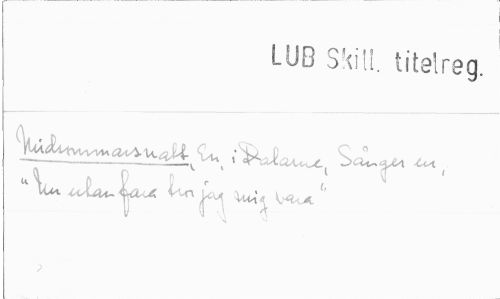 LUB Skill. titelreg.
Midsommarsnatt, En, i Dalarne, Sånger en,
"Nu utan fara tror jag mig vara"